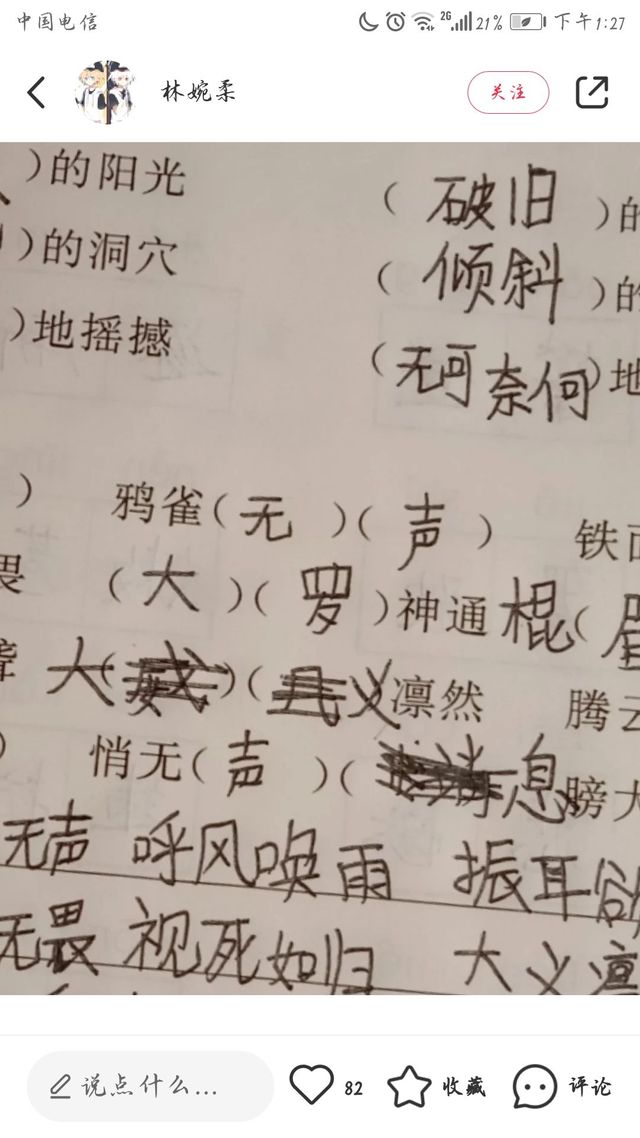 中国电信 2G 21% 下午1:27
林婉柔 关注
)的阳光 (破旧)的
)的洞穴 (倾斜)的
)地摇撼 (无可奈何)地
) 鸦雀(无)(声) 铁面
畏 (大)(罗)神通 棍(眉
大( )( 义凛然 腾云
) 悄无(声)( 息 膀大
无声 呼风唤雨 振耳欲
无畏 视死如归 大义凛
说点什么... 82 收藏 评论